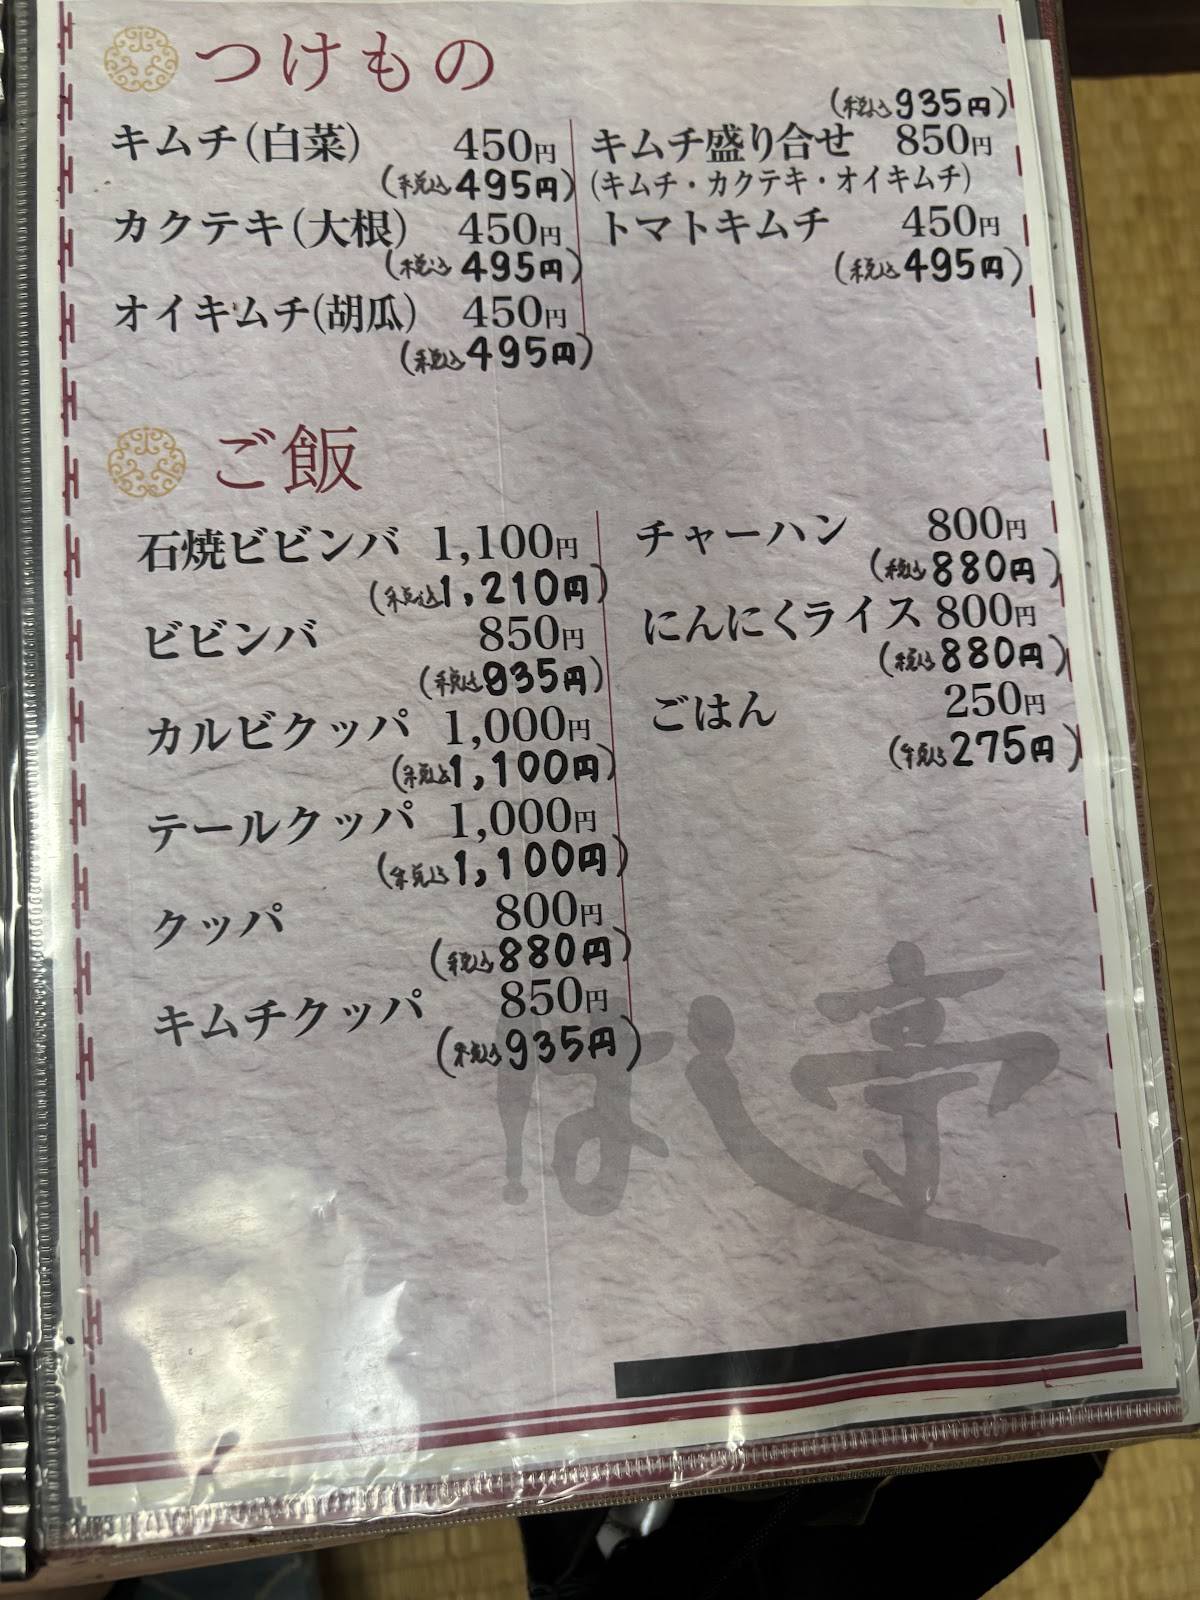 つけもの
キムチ(白菜) 450円
(税込495円)
カクテキ(大根) 450円
(税込495円)
オイキムチ(胡瓜) 450円
(税込495円)
(税込935円)
キムチ盛り合せ 850円
(キムチ・カクテキ・オイキムチ)
トマトキムチ 450円
(税込495円)
ご飯
石焼ビビンバ 1,100円
(税込1,210円)
ビビンバ 850円
(税込935円)
カルビクッパ 1,000円
(税込1,100円)
テールクッパ 1,000円
(税込1,100円)
クッパ 800円
(税込880円)
キムチクッパ 850円
(税込935円)
チャーハン 800円
(税込880円)
にんにくライス 800円
(税込880円)
ごはん 250円
(税込275円)
はし亭